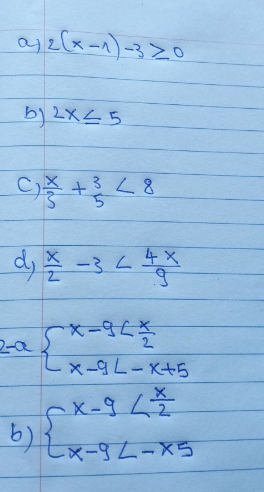 a) 2(x-1)-3≥0
b) 2x≤5
c) x/3 + 3/5 < 8
d) x/2 - 3 < 4x/9
2-a { x-9<x/2
x-9<-x+5
b) { x-9<x/2
x-9<-x5